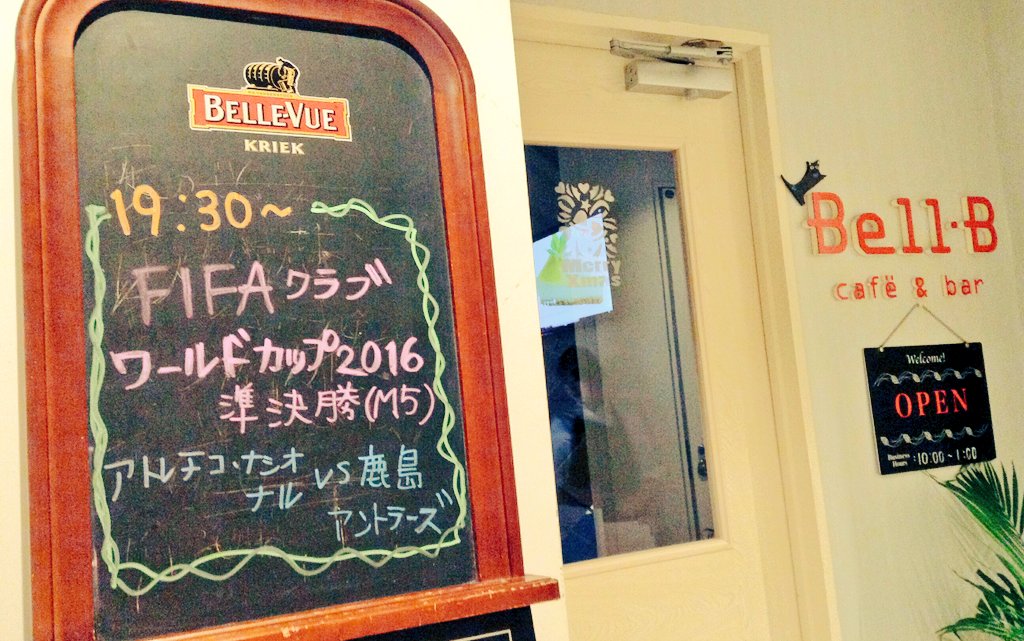 BELLE-VUE
KRIEK
19:30〜
FIFAクラブ
ワールドカップ2016
準決勝(M5)
アトレチコ・ナシオ
ナル VS 鹿島
アントラーズ
Merr
Xmas
Bell·B
cafë & bar
Welcome!
OPEN
Business
Hours :10:00~1:00